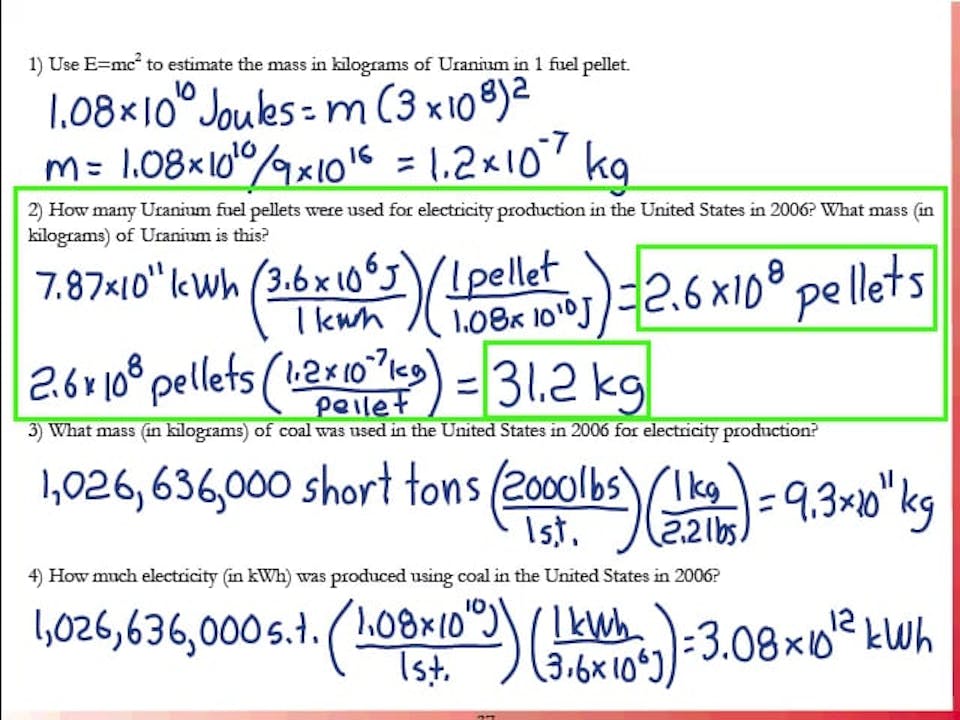 1) Use E=mc² to estimate the mass in kilograms of Uranium in 1 fuel pellet.
1.08×10¹⁰ Joules = m (3×10⁸)²
m = 1.08×10¹⁰/9×10¹⁶ = 1.2×10⁻⁷ kg
2) How many Uranium fuel pellets were used for electricity production in the United States in 2006? What mass (in
kilograms) of Uranium is this?
7.87×10¹¹ kWh (3.6×10⁶J / 1 kwh) (1 pellet / 1.08×10¹⁰J) = 2.6×10⁸ pellets
2.6×10⁸ pellets (1.2×10⁻⁷kg / pellet) = 31.2 kg
3) What mass (in kilograms) of coal was used in the United States in 2006 for electricity production?
1,026,636,000 short tons (2000lbs / 1s.t.) (1kg / 2.2lbs) = 9.3×10¹¹ kg
4) How much electricity (in kWh) was produced using coal in the United States in 2006?
1,026,636,000 s.t. (1.08×10¹⁰J / 1s.t.) (1 kWh / 3.6×10⁶J) = 3.08×10¹² kWh